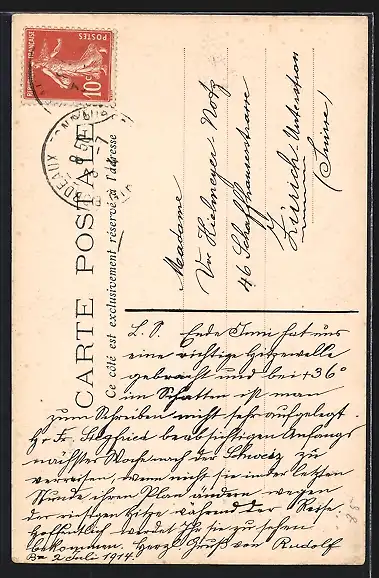 CARTE POSTALE
Ce côté est exclusivement réservé à l'adresse
POSTES
10
BORDEAUX
Madame
Vve Hiebmeyer Notz
46 Schaffhauserstrasse
Zürich-Unterstrass
(Suisse)
L. P. Ende Juni hat uns
eine richtige Hitzewelle
gebracht und bei +36°
im Schatten ist man
zum Schreiben nicht sehr aufgelegt.
H. Fr. Siegfried beabsichtigen Anfangs
nächster Woche nach der Schweiz zu
verreisen, wenn nicht sie in der letzten
Stunde ihren Plan ändern wegen
der riesigen Hitze während der Reise.
Hoffentlich werdet Ihr sie zu sehen
bekommen. Herzl. Gruss von Rudolf
Bx 2 Juli 1914.